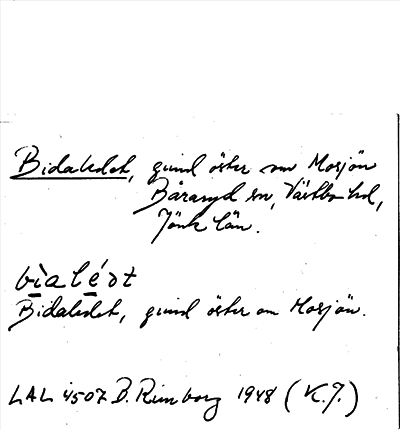 Bidaledet, grind öster om Mosjön
Båraryd sn, Västbo hd,
Jönk län.
bìalédt
Bidaledet, grind öster om Mosjön.
LAL 4507 B. Rimborg 1948 (K.J.)